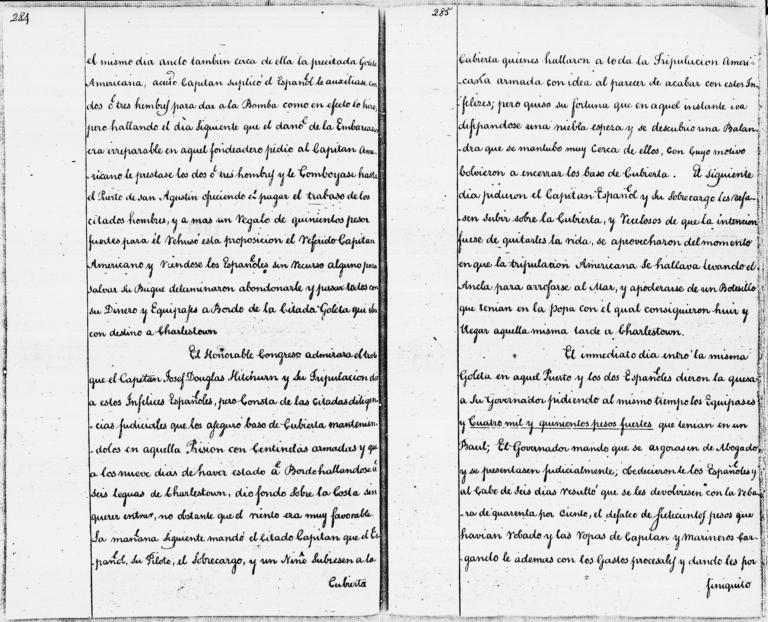 284
el mismo dia anclo tambien cerca de ella la precitada Goleta
Americana, acuio Capitan suplicó el Español le auxiliase con
dos ó tres hombres para dar a la Bomba como en efecto lo hizo,
pero hallando el dia siguiente que el daño de la Embarcacion
era irreparable en aquel fondeadero pidio al Capitan Ame-
ricano le prestase los dos ó tres hombres y le Comboyase hasta
el Puerto de san Agustin ofreciendo pagar el trabaso de los
citados hombres, y a mas un Regalo de quinientos pesos
fuertes para él Rehuso esta proposicion el Referido Capitan
Americano y viendose los Españoles sin Recurso alguno para
salvar su Buque determinaron abandonarle y pasar todos con
su Dinero y Equipajes a Bordo de la Citada Goleta que iba
con destino a Charlestown
El Honorable Congreso admirara el trato
que el Capitan Josef Douglas Hitchurn y su Tripulacion dio
a estos Infelices Españoles, pero Consta de las Citadas diligen-
cias judiciales que los aseguró baso de Cubierta mantenien-
dolos en aquella Prision con Centinelas armadas y que
a los nueve dias de haver estado á Bordo hallandose á
seis leguas de Charlestown, dio fondo sobre la Costa sin
querer entrar, no obstante que el viento era muy favorable
La mañana siguiente mandó el Citado Capitan que el Es-
pañol, su Piloto, el Sobrecargo, y un Niño Subiesen a la
Cubierta
285
Cubierta quienes hallaron a toda la Tripulacion Ameri-
cana armada con idea al parecer de acabar con estos In-
felizes; pero quiso su fortuna que en aquel instante iva
disipandose una niebla espeza y se descubrio una Balan-
dra que se mantubo muy cerca de ellos, con cuyo motivo
bolvieron a encerrar los baso de Cubierta. El siguiente
dia pidieron el Capitan Español y su Sobrecargo les desa-
sen subir sobre la Cubierta, y Recelosos de que la intencion
fuese de quitarles la vida, se aprovecharon del momento
en que la tripulacion Americana se hallava levando el
Ancla para arrosarse al Mar, y apoderarse de un Botesillo
que tenian en la popa con el qual consiguieron huir y
llegar aquella misma tarde a Charlestown.
El immediato dia entró la misma
Goleta en aquel Puerto y los dos Españoles dieron la quexa
a su Governador pidiendo al mismo tiempo los Equipases
y Cuatro mil y quinientos pesos fuertes que tenian en un
Baul; El Governador mando que se argorasen de Abogado
y se presentasen judicialmente; obedecieronle los Españoles y
al Cabo de Seis dias Resultó que se les devolviesen con la Reba-
ra de quarenta por ciento, el defalco de setecientos pesos que
havian Robado y las Ropas de Capitan y Marineros Car-
gando le ademas con los Gastos procesales y dando les por
finiquito